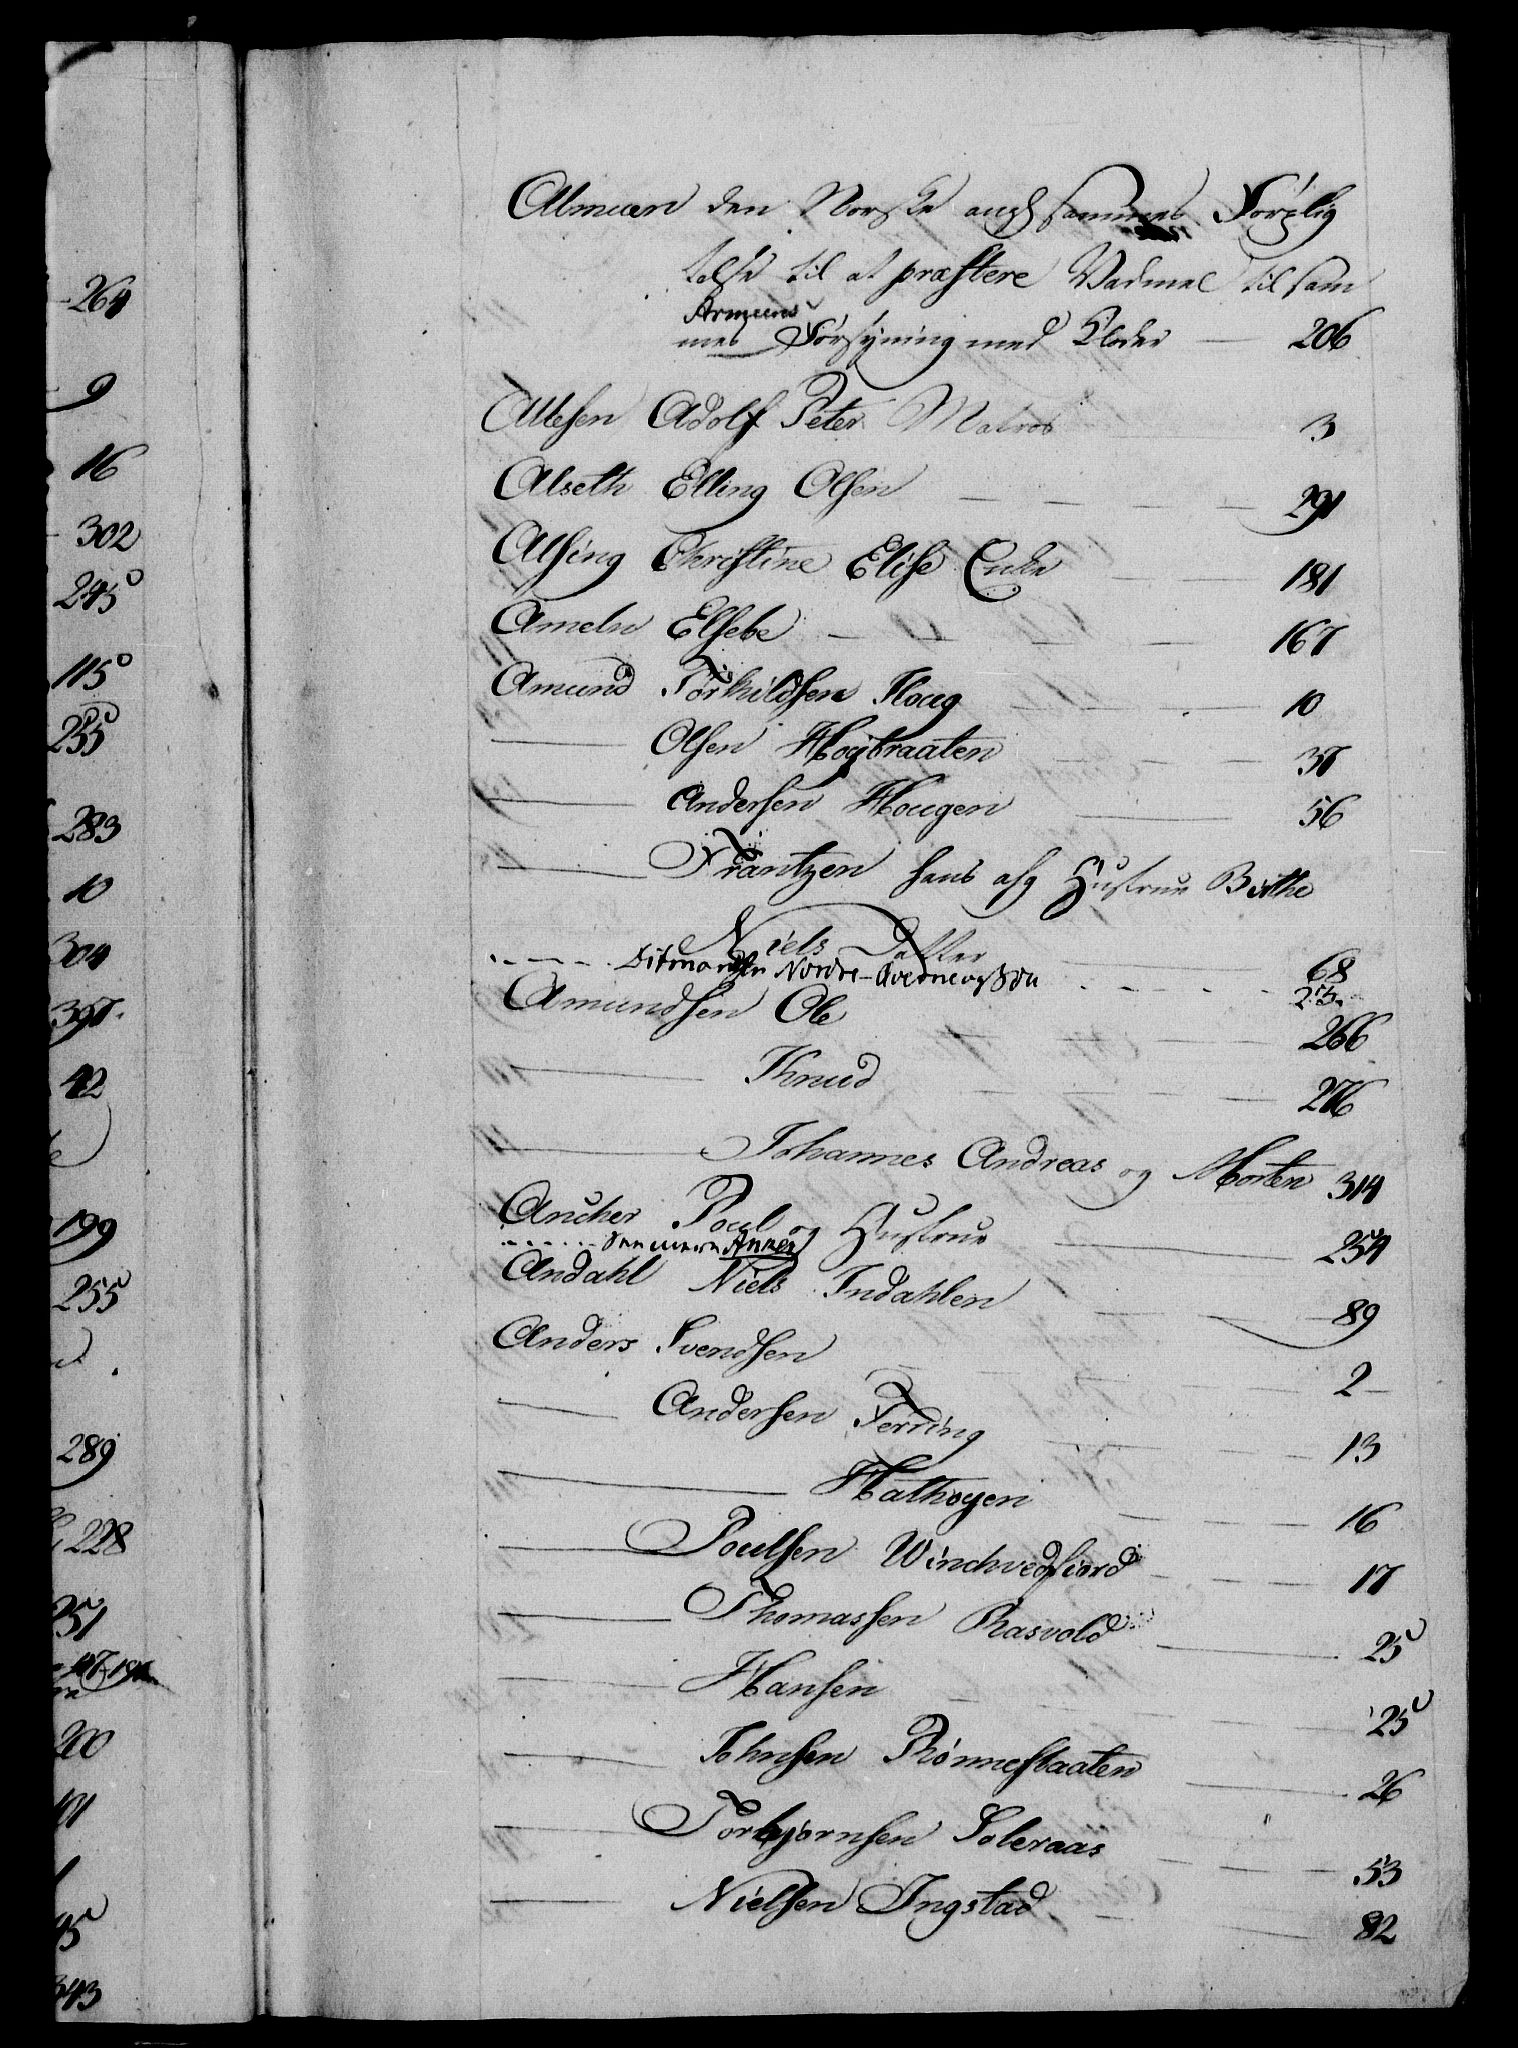 264
9
16
302
245
115
255
283
10
304
397.
42
199
255
289
228
251
200
101
45
343
Almuen den Norske ang sammes Forplig
telse til at præstere Vadmel til sam
Armeens
mes Forsyning med Klæder — 206
Allesen Adolf Peter Matros 3
Alseth Elling Olsen 291
Alsing Christine Elise Enke 181
Ameln Elsebe 167
Amund Torkildsen Houg 10
— Olsen Hogbraaten 37
— Andersen Hougen 56
— Frantzen hans afg Hustrue Birthe
Niels Datter 68
Ditmarsen Nordre 25.
Amundsen Ole 266
— Knud 276
— Johannes Andreas og Morten 314
Ancher Poul og Hustrue 254
Anker
Andahl Niels Indahlen 89
Anders Svendsen 2
— Andersen Ferring 13
— Hathøyen 16
— Poulsen Winchvedfiord 17
— Thomassen Rasvold 25
— Hansen 25
— Johnsen Rønnestaaten 26
— Torbjørnsen Soleraas 53
— Nielsen Ingstad 82